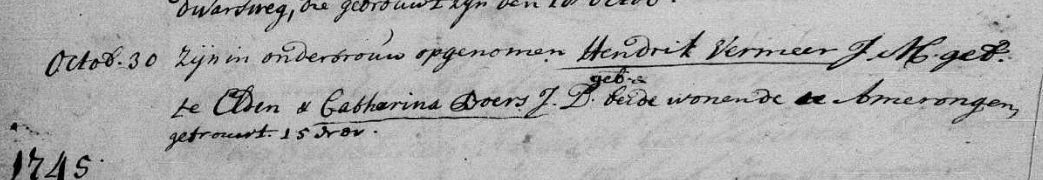 dwarsweg, die getrouwt zijn den 18 Octob.
Octob. 30 Zijn in ondertrouw opgenomen Hendrik Vermeer J. M. geb.
geb.
te Elden & Catharina Doers J. D. beide wonende te Amerongen,
getrouwt. 15 Nov.
1745.